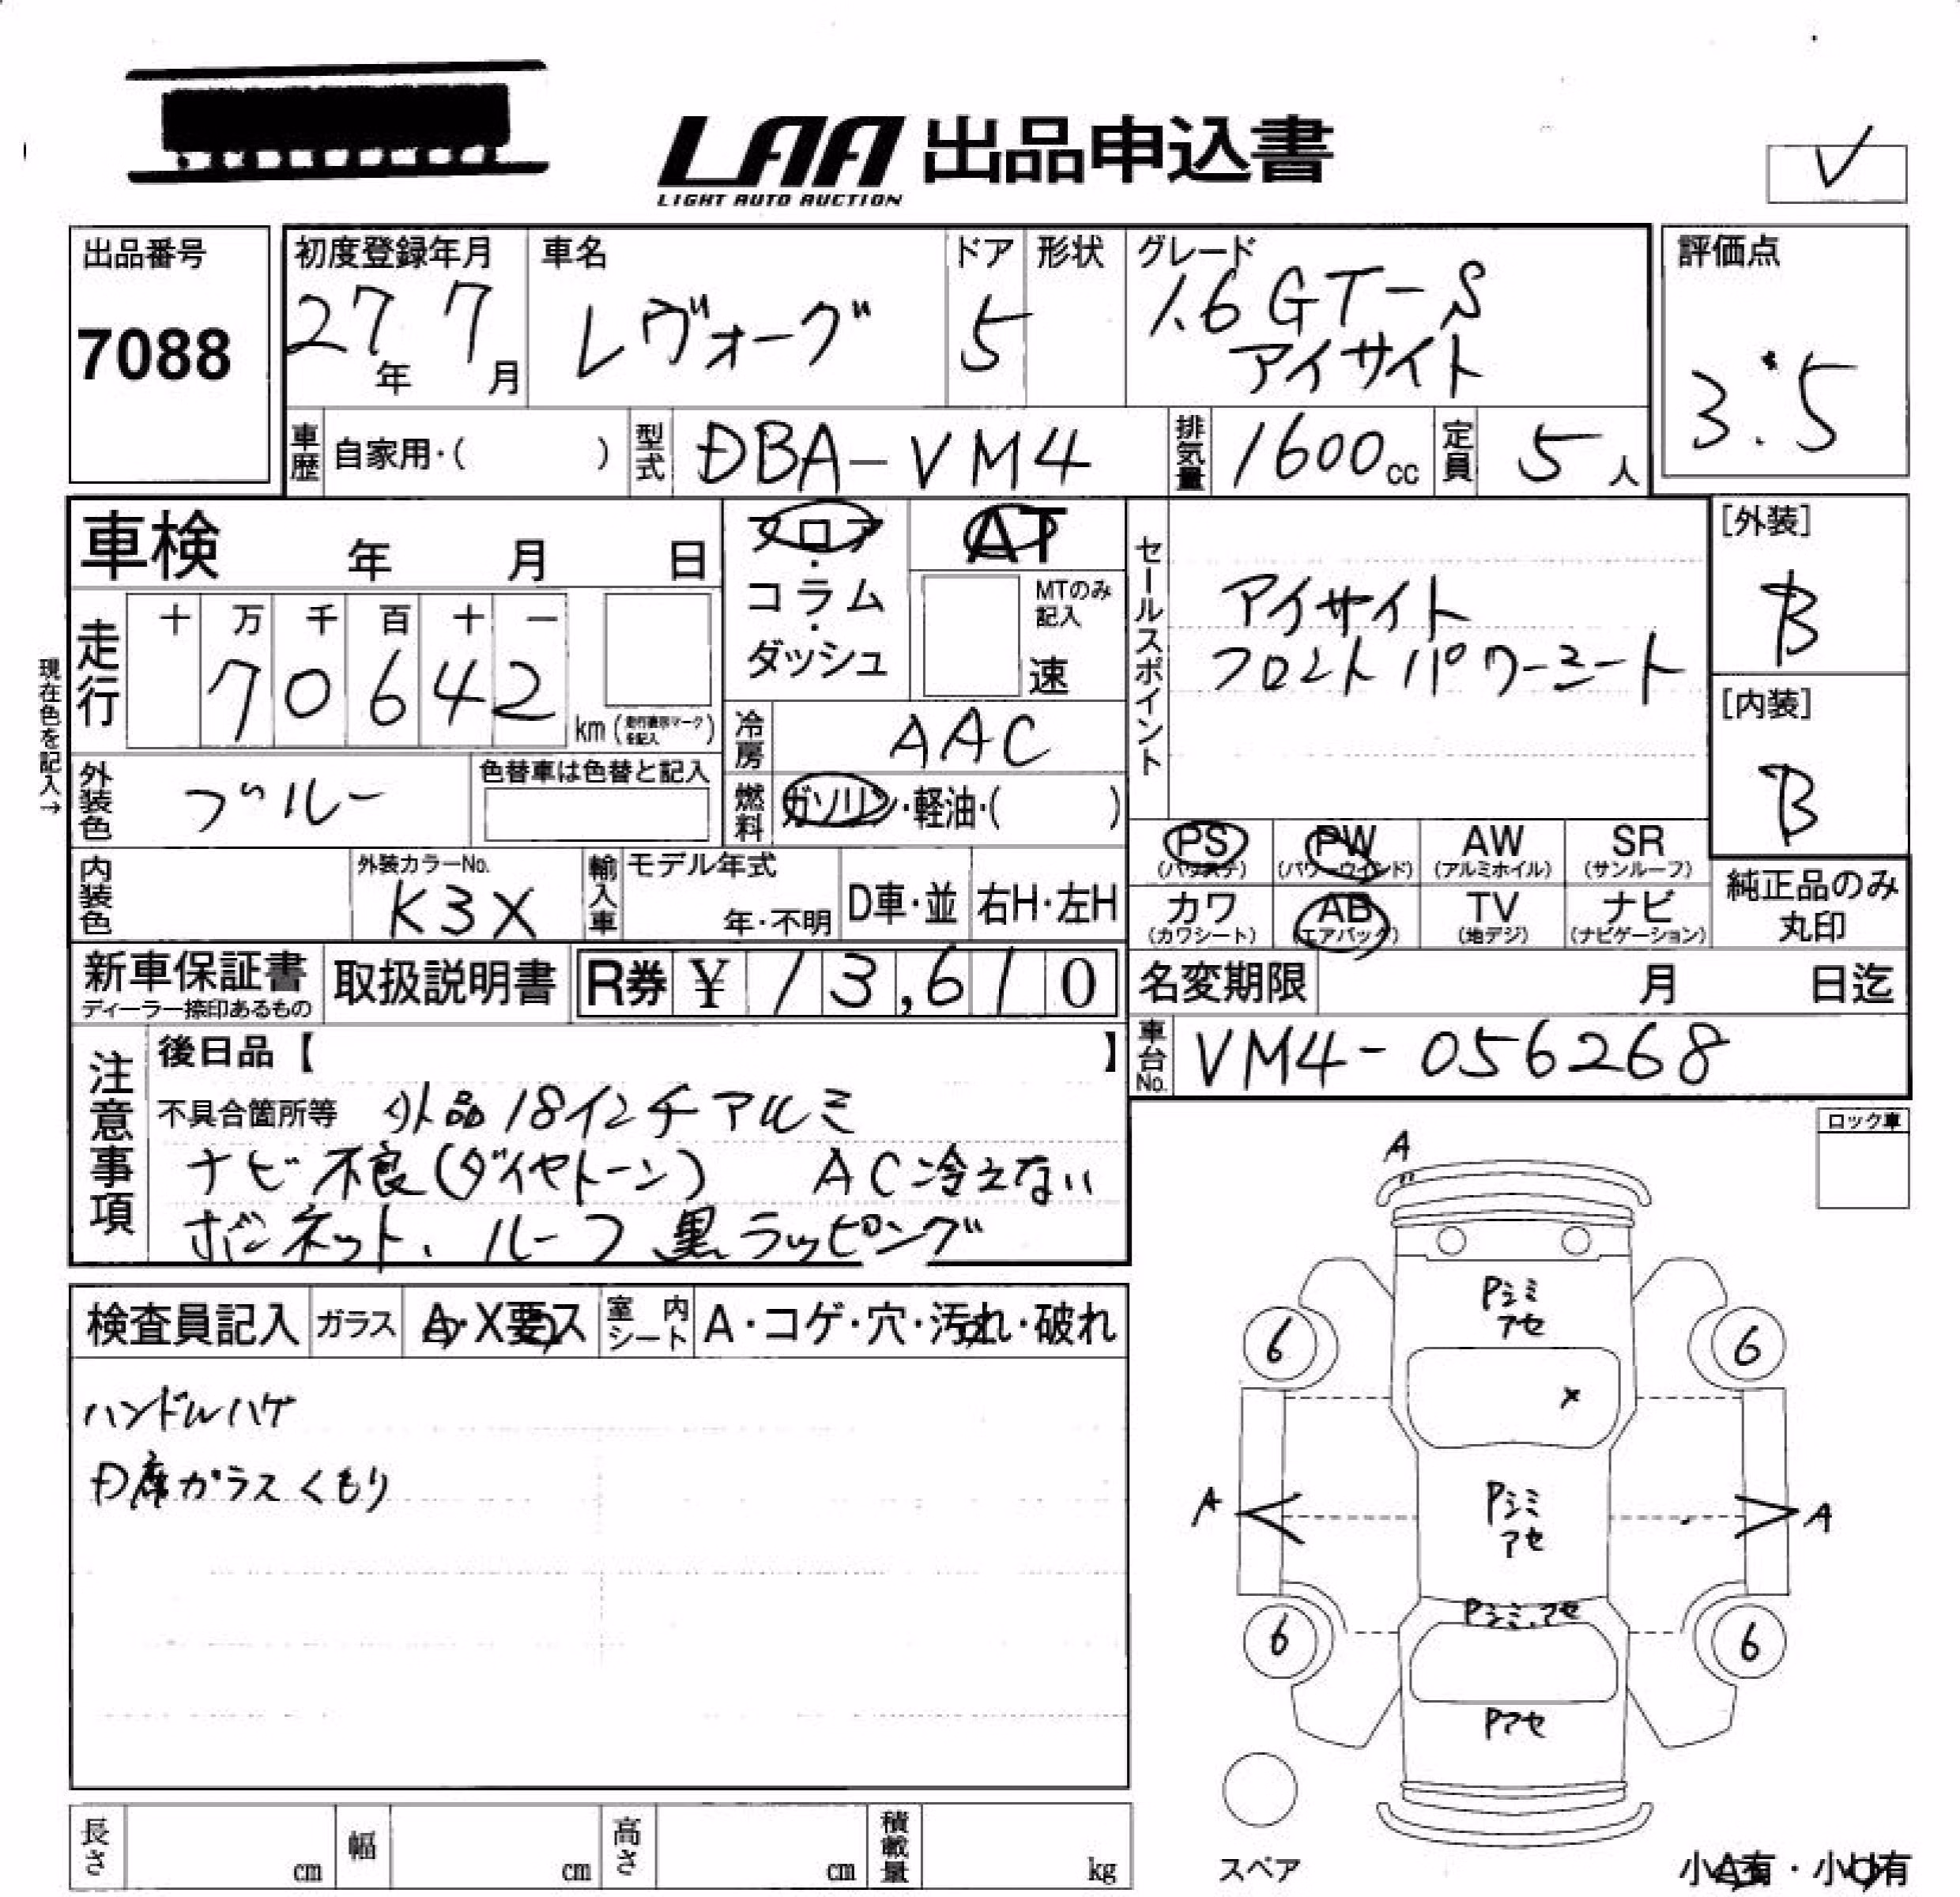 LAA 出品申込書
LIGHT AUTO AUCTION
出品番号
7088
初度登録年月
27年 7月
車名
レヴォーグ
ドア
5
形状
グレード
1.6 GT-S
アイサイト
評価点
3.5
車歴 自家用・( )
型式 DBA-VM4
排気量 1600cc
定員 5人
車検 年 月 日
フロア・
コラム・
ダッシュ
AT
MTのみ
記入
速
セールスポイント
アイサイト
フロントパワーシート
[外装]
B
[内装]
B
現在色を記入→
走行
十 万 千 百 十 一
7 0 6 4 2
km(走行表示マークを記入)
冷房 AAC
外装色 ブルー
色替車は色替と記入
燃料 ガソリン・軽油・( )
内装色
外装カラーNo.
K3X
輸入車
モデル年式
年・不明
D車・並
右H・左H
PS
(パワステ)
PW
(パワーウインド)
AW
(アルミホイル)
SR
(サンルーフ)
カワ
(カワシート)
AB
(エアバッグ)
TV
(地デジ)
ナビ
(ナビゲーション)
純正品のみ
丸印
新車保証書
ディーラー捺印あるもの
取扱説明書
R券 ¥ 13,610
名変期限 月 日迄
車台No. VM4-056268
注意事項
後日品【 】
不具合箇所等 外品18インチアルミ
ナビ不良(ダイヤトーン) AC冷えない
ボンネット、ルーフ黒ラッピング
ロック車
検査員記入
ガラス
A・X要ス
室内シート
A・コゲ・穴・汚れ・破れ
ハンドルハゲ
D席ガラスくもり
A
Pシミ
アセ
6
6
X
A
Pシミ
アセ
A
Pシミ.アセ
6
6
Pアセ
スペア
小A有・小U有
長さ cm
幅 cm
高さ cm
積載量 kg